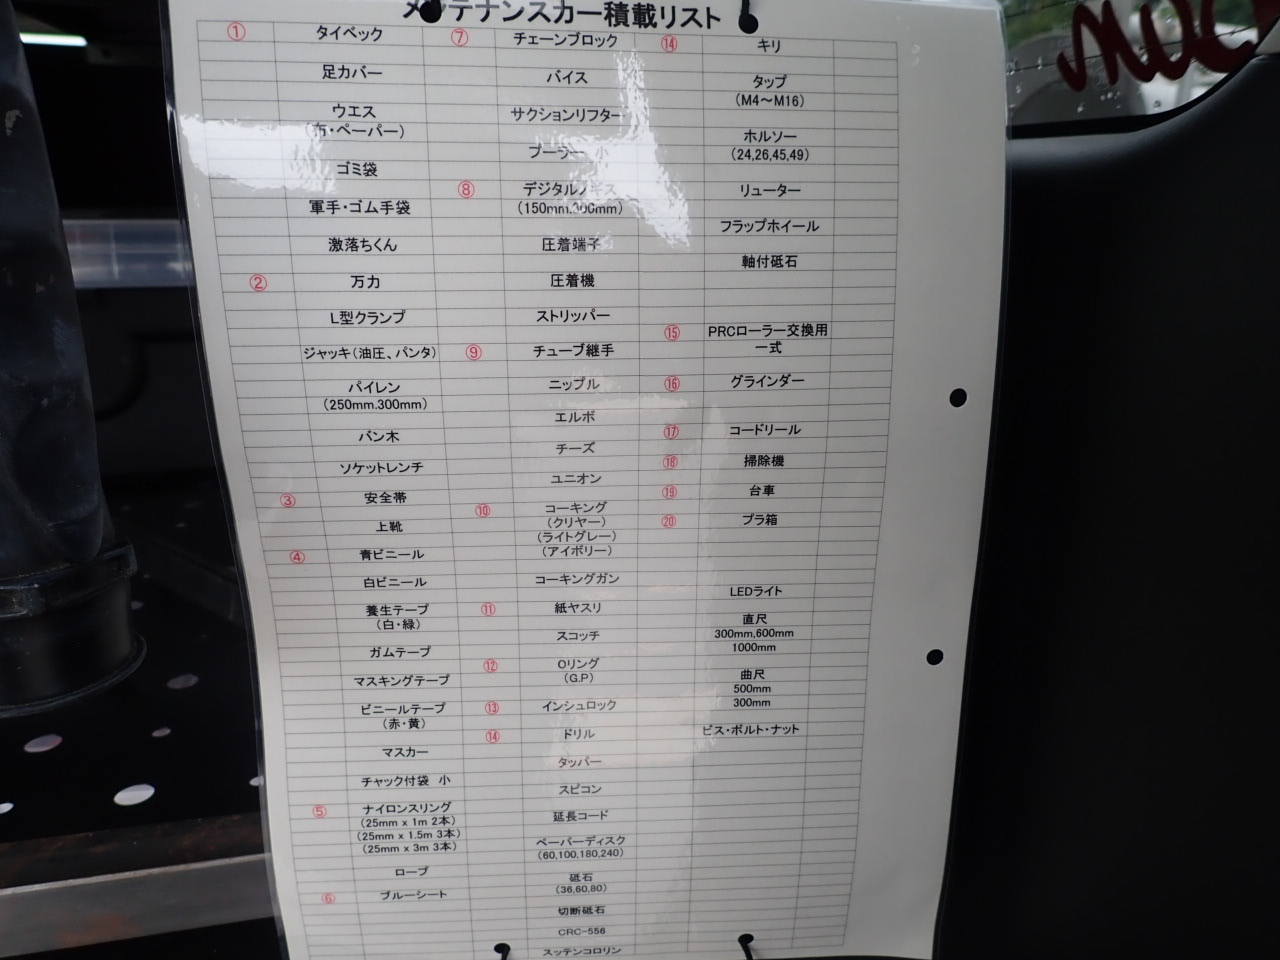 メンテナンスカー積載リスト
① タイベック
足カバー
ウエス
(布・ペーパー)
ゴミ袋
軍手・ゴム手袋
激落ちくん
② 万力
L型クランプ
ジャッキ(油圧、パンタ)
パイレン
(250mm.300mm)
バン木
ソケットレンチ
③ 安全帯
上靴
④ 青ビニール
白ビニール
養生テープ
(白・緑)
ガムテープ
マスキングテープ
ビニールテープ
(赤・黄)
マスカー
チャック付袋 小
⑤ ナイロンスリング
(25mm x 1m 2本)
(25mm x 1.5m 3本)
(25mm x 3m 3本)
ロープ
⑥ ブルーシート
⑦ チェーンブロック
バイス
サクションリフター
プーラー 小
⑧ デジタルノギス
(150mm.300mm)
圧着端子
圧着機
ストリッパー
⑨ チューブ継手
ニップル
エルボ
チーズ
ユニオン
⑩ コーキング
(クリヤー)
(ライトグレー)
(アイボリー)
コーキングガン
⑪ 紙ヤスリ
スコッチ
⑫ Oリング
(G.P)
⑬ インシュロック
⑭ ドリル
タッパー
スピコン
延長コード
ペーパーディスク
(60,100,180,240)
砥石
(36,60,80)
切断砥石
CRC-556
スッテンコロリン
⑭ キリ
タップ
(M4～M16)
ホルソー
(24,26,45,49)
リューター
フラップホイール
軸付砥石
⑮ PRCローラー交換用
一式
⑯ グラインダー
⑰ コードリール
⑱ 掃除機
⑲ 台車
⑳ プラ箱
LEDライト
直尺
300mm,600mm
1000mm
曲尺
500mm
300mm
ビス・ボルト・ナット